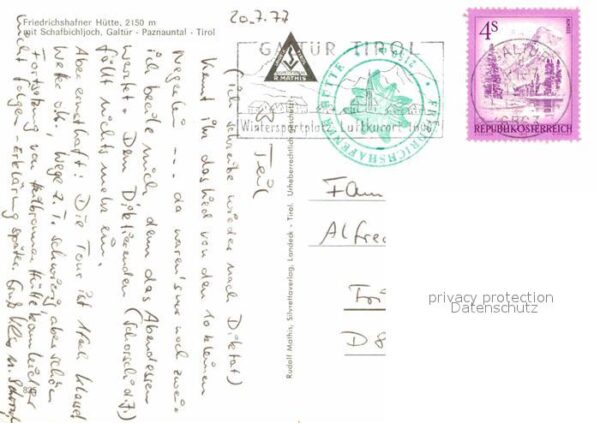 Friedrichshafner Hütte, 2150 m
mit Schafbichljoch, Galtür - Paznauntal - Tirol
20.7.77
3. Teil
(ich schreibe wieder nach Diktat)
Kennt ihr das Lied von den 10 kleinen
Negerlein ... da waren's nur noch zwei.
ich beeile mich, denn das Abendessen
wartet. Den Diktierenden (Schorsch d.J.)
fällt nichts mehr ein.
Aber ernsthaft: Die Tour ist 1tel klasse
Wetter ok, Wege z.T. schwierig, aber schön
Fortsetzung von Heilbronner Hütte kam leider
nicht folgen. Erklärung später. Gruß
GALTÜR TIROL
Wintersportplatz Luftkurort
6563
R. MATHIS
FRIEDRICHSHAFENER HÜTTE
4S
REPUBLIK ÖSTERREICH
Rudolf Mathis, Silvrettaverlag, Landeck - Tirol. Urheberrechtlich geschützt
Fam
Alfred
D 8
privacy protection
Datenschutz